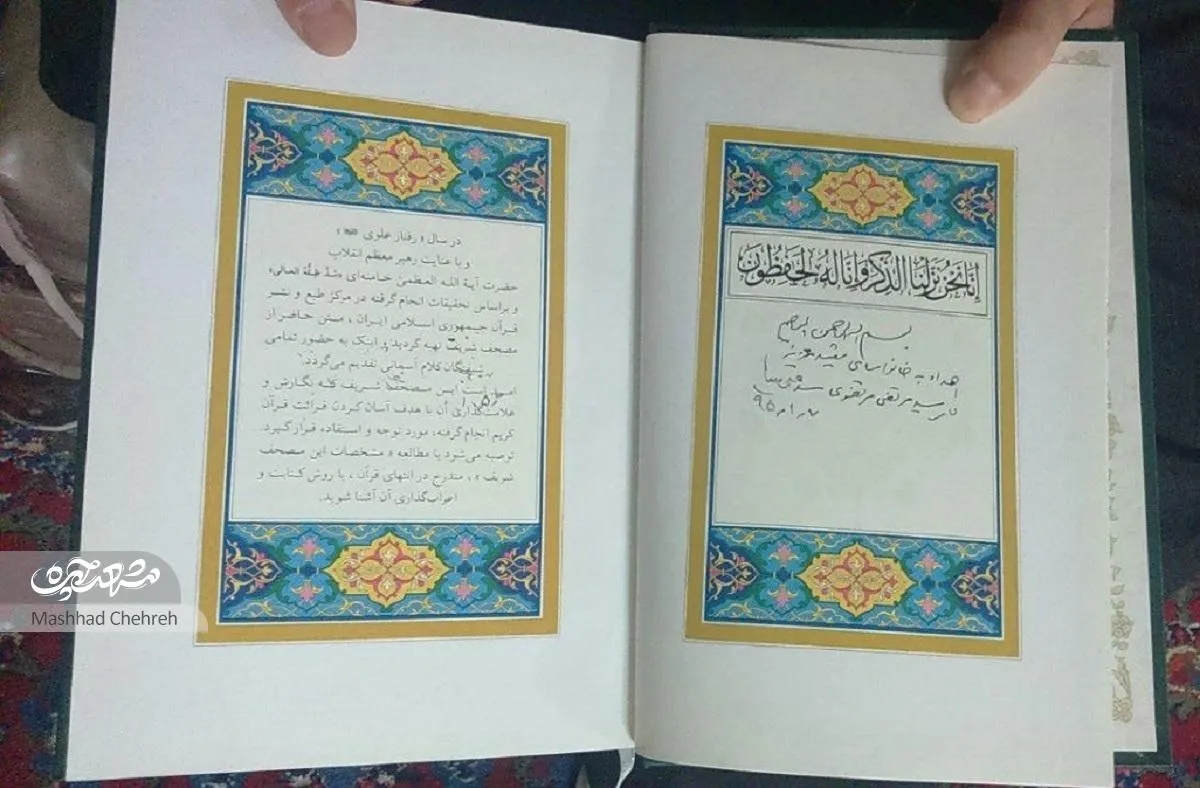 إِنَّا نَحْنُ نَزَّلْنَا الذِّكْرَ وَإِنَّا لَهُ لَحَافِظُونَ
بسم الله الرحمن الرحیم
اهداء به خانواده‌ی شهید عزیز
سید مرتضی
در سال « رفتار علوی »
و با عنایت رهبر معظم انقلاب
حضرت آیة الله العظمی خامنه‌ای «مُدَّ ظِلُّهُ العالی»
و براساس تحقیقات انجام گرفته در مرکز طبع و نشر
قرآن جمهوری اسلامی ایران ، متن حاضر از
مصحف شریف تهیه گردید و اینک به حضور تمامی
شیفتگان کلام آسمانی تقدیم می‌گردد.
امید است این مصحف شریف که نگارش و
علامت‌گذاری آن با هدف آسان کردن قرائت قرآن
کریم انجام گرفته، مورد توجه و استفاده قرار گیرد.
توصیه می‌شود با مطالعه « مشخصات این مصحف
شریف » ، مندرج در انتهای قرآن ، با روش کتابت و
اعراب‌گذاری آن آشنا شوید.
مشهد چهره
Mashhad Chehreh